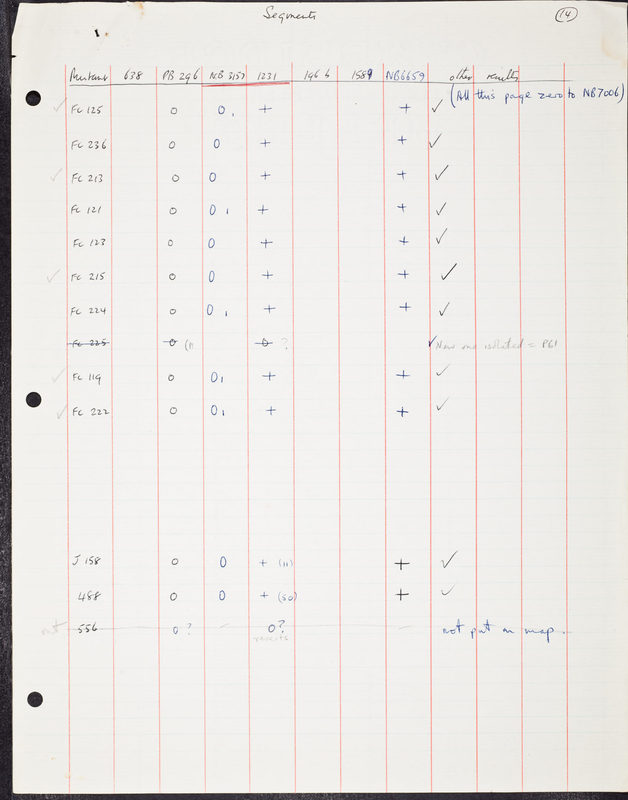 Segments
14
Mutant 638 PB 296 NB 3157 1231 196 6 1589 NB6659 other results
(All this page zero to NB7006)
✓ FC 125 0 0, + + ✓
FC 236 0 0 + + ✓
✓ FC 213 0 0 + + ✓
FC 121 0 0 , + + ✓
FC 123 0 0 + + ✓
✓ FC 215 0 0 + + ✓
FC 224 0 0 , + + ✓
FC 225 0 (11 0 ? ✓ New one isolated = P61
✓ FC 119 0 0, + + ✓
✓ FC 222 0 0, + + ✓
J 158 0 0 + (11) + ✓
488 0 0 + (50) + ✓
out 556 0 ? – 0? – not put on map.
reverts